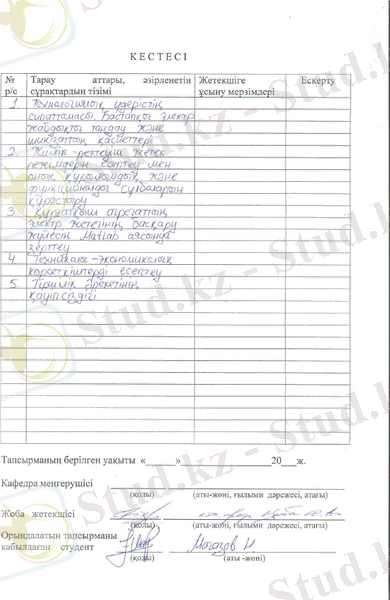 КЕСТЕСІ
№ р/с
Тарау аттары, әзірленетін сұрақтардың тізімі
Жетекшіге ұсыну мерзімдері
Ескерту
1 Технологиялық үдерістің
сипаттамасы. Бастапқы электр
жабдықты таңдау және
шикізаттың қасиеттері
2. Жиілік-реттеуіш жетек
режимдерін есептеу мен
оның құрылымдық және
функционалды сұлбаларын
құрастыру
3. Кептіргіш агрегаттың
электр жетегінің басқару
жүйесін Matlab аясында
зерттеу
4 Техникалық-экономикалық
көрсеткіштерді есептеу
5. Тіршілік әрекетінің
қауіпсіздігі
Тапсырманың берілген уақыты «____» ____________20___ж.
Кафедра меңгерушісі
(қолы) (аты-жөні, ғылыми дәрежесі, атағы)
Жоба жетекшісі
(қолы) (аты-жөні, ғылыми дәрежесі, атағы)
Орындалатын тапсырманы
қабылдаған студент
(қолы) (аты-жөні)
Stud.kz - Stud.kz